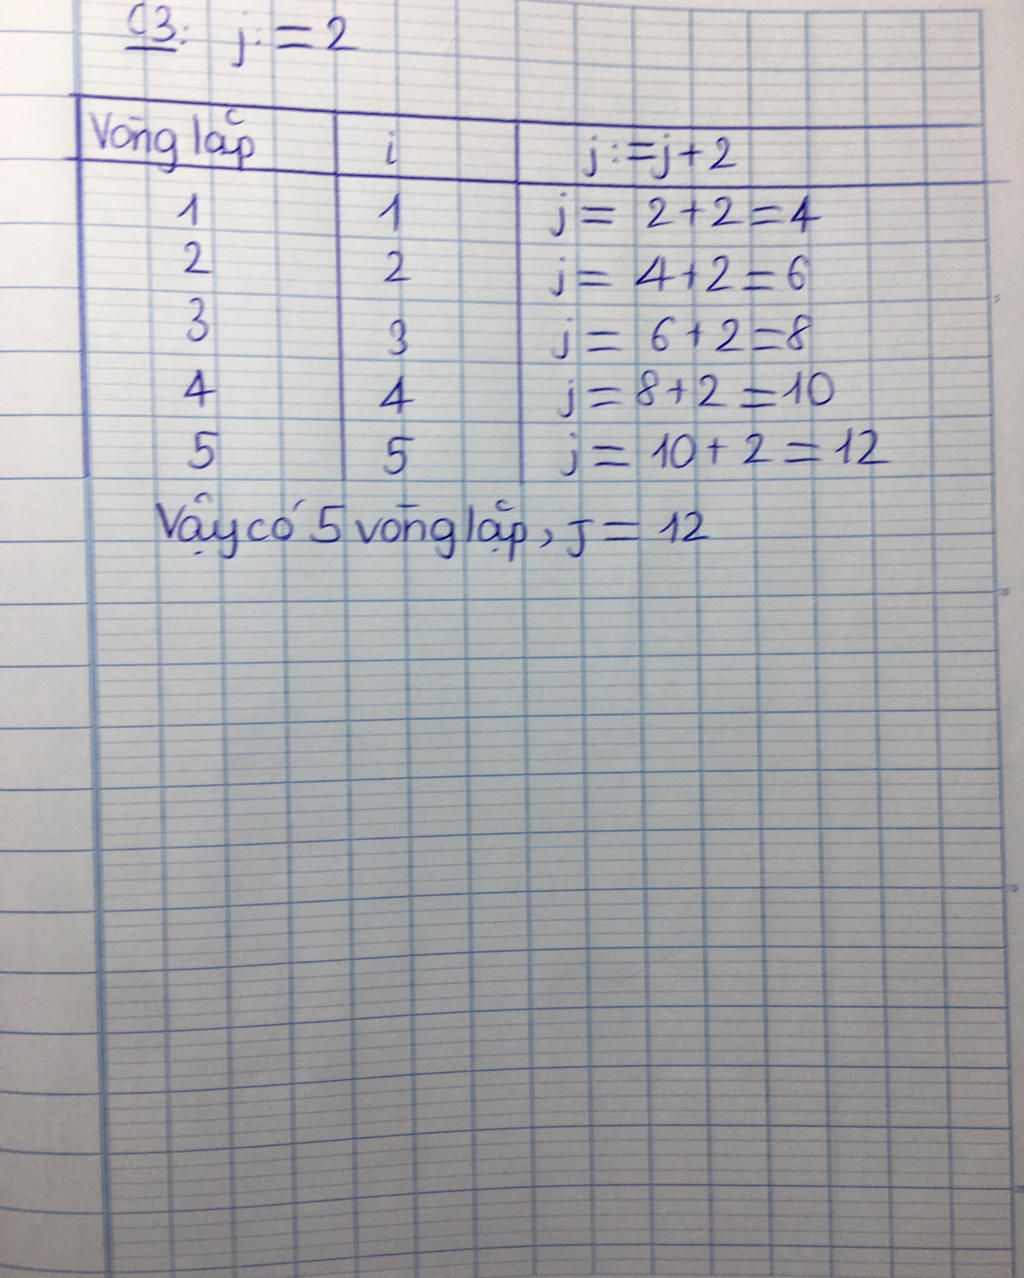 C3: j:=2
Vòng lặp i j:=j+2
1 1 j= 2+2=4
2 2 j= 4+2=6
3 3 j= 6+2=8
4 4 j=8+2=10
5 5 j= 10+2=12
Vậy có 5 vòng lặp, j= 12